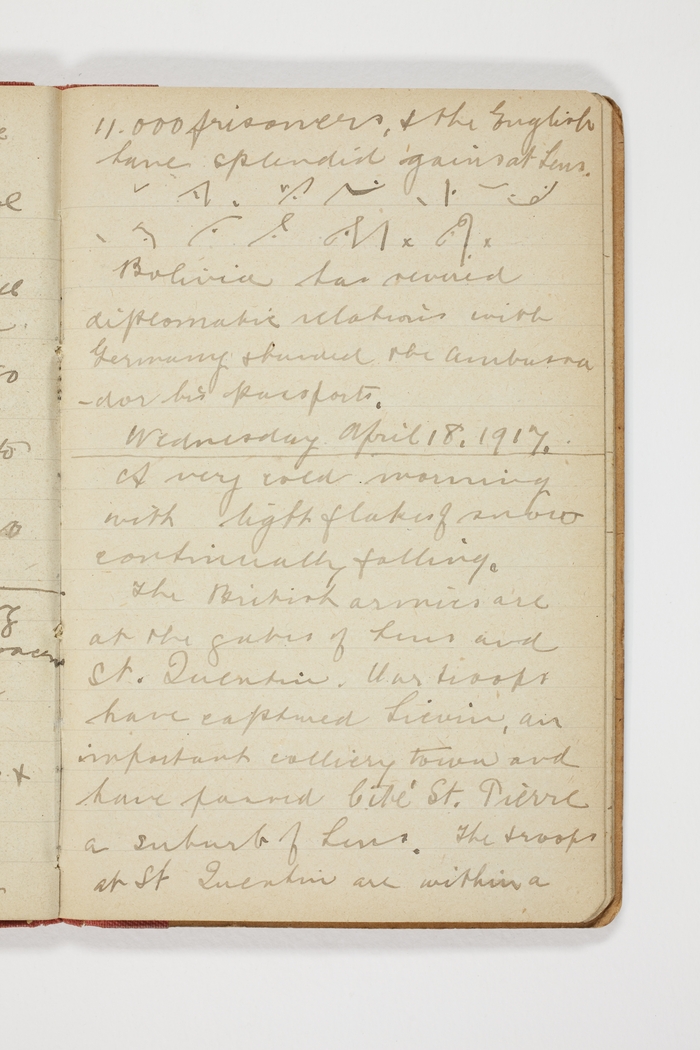 11.000 prisoners, & the English
have splendid gains at Lens.
Bolivia has severed
diplomatic relations with
Germany & handed the ambassa
-dor his passports.
Wednesday April 18. 1917.
A very cold morning
with light flakes of snow
continually falling.
The British armies are
at the gates of Lens and
St. Quentin. Our troops
have captured Lievin, an
important colliery town and
have passed Cité St. Pierre
a suburb of Lens. The troops
at St Quentin are within a